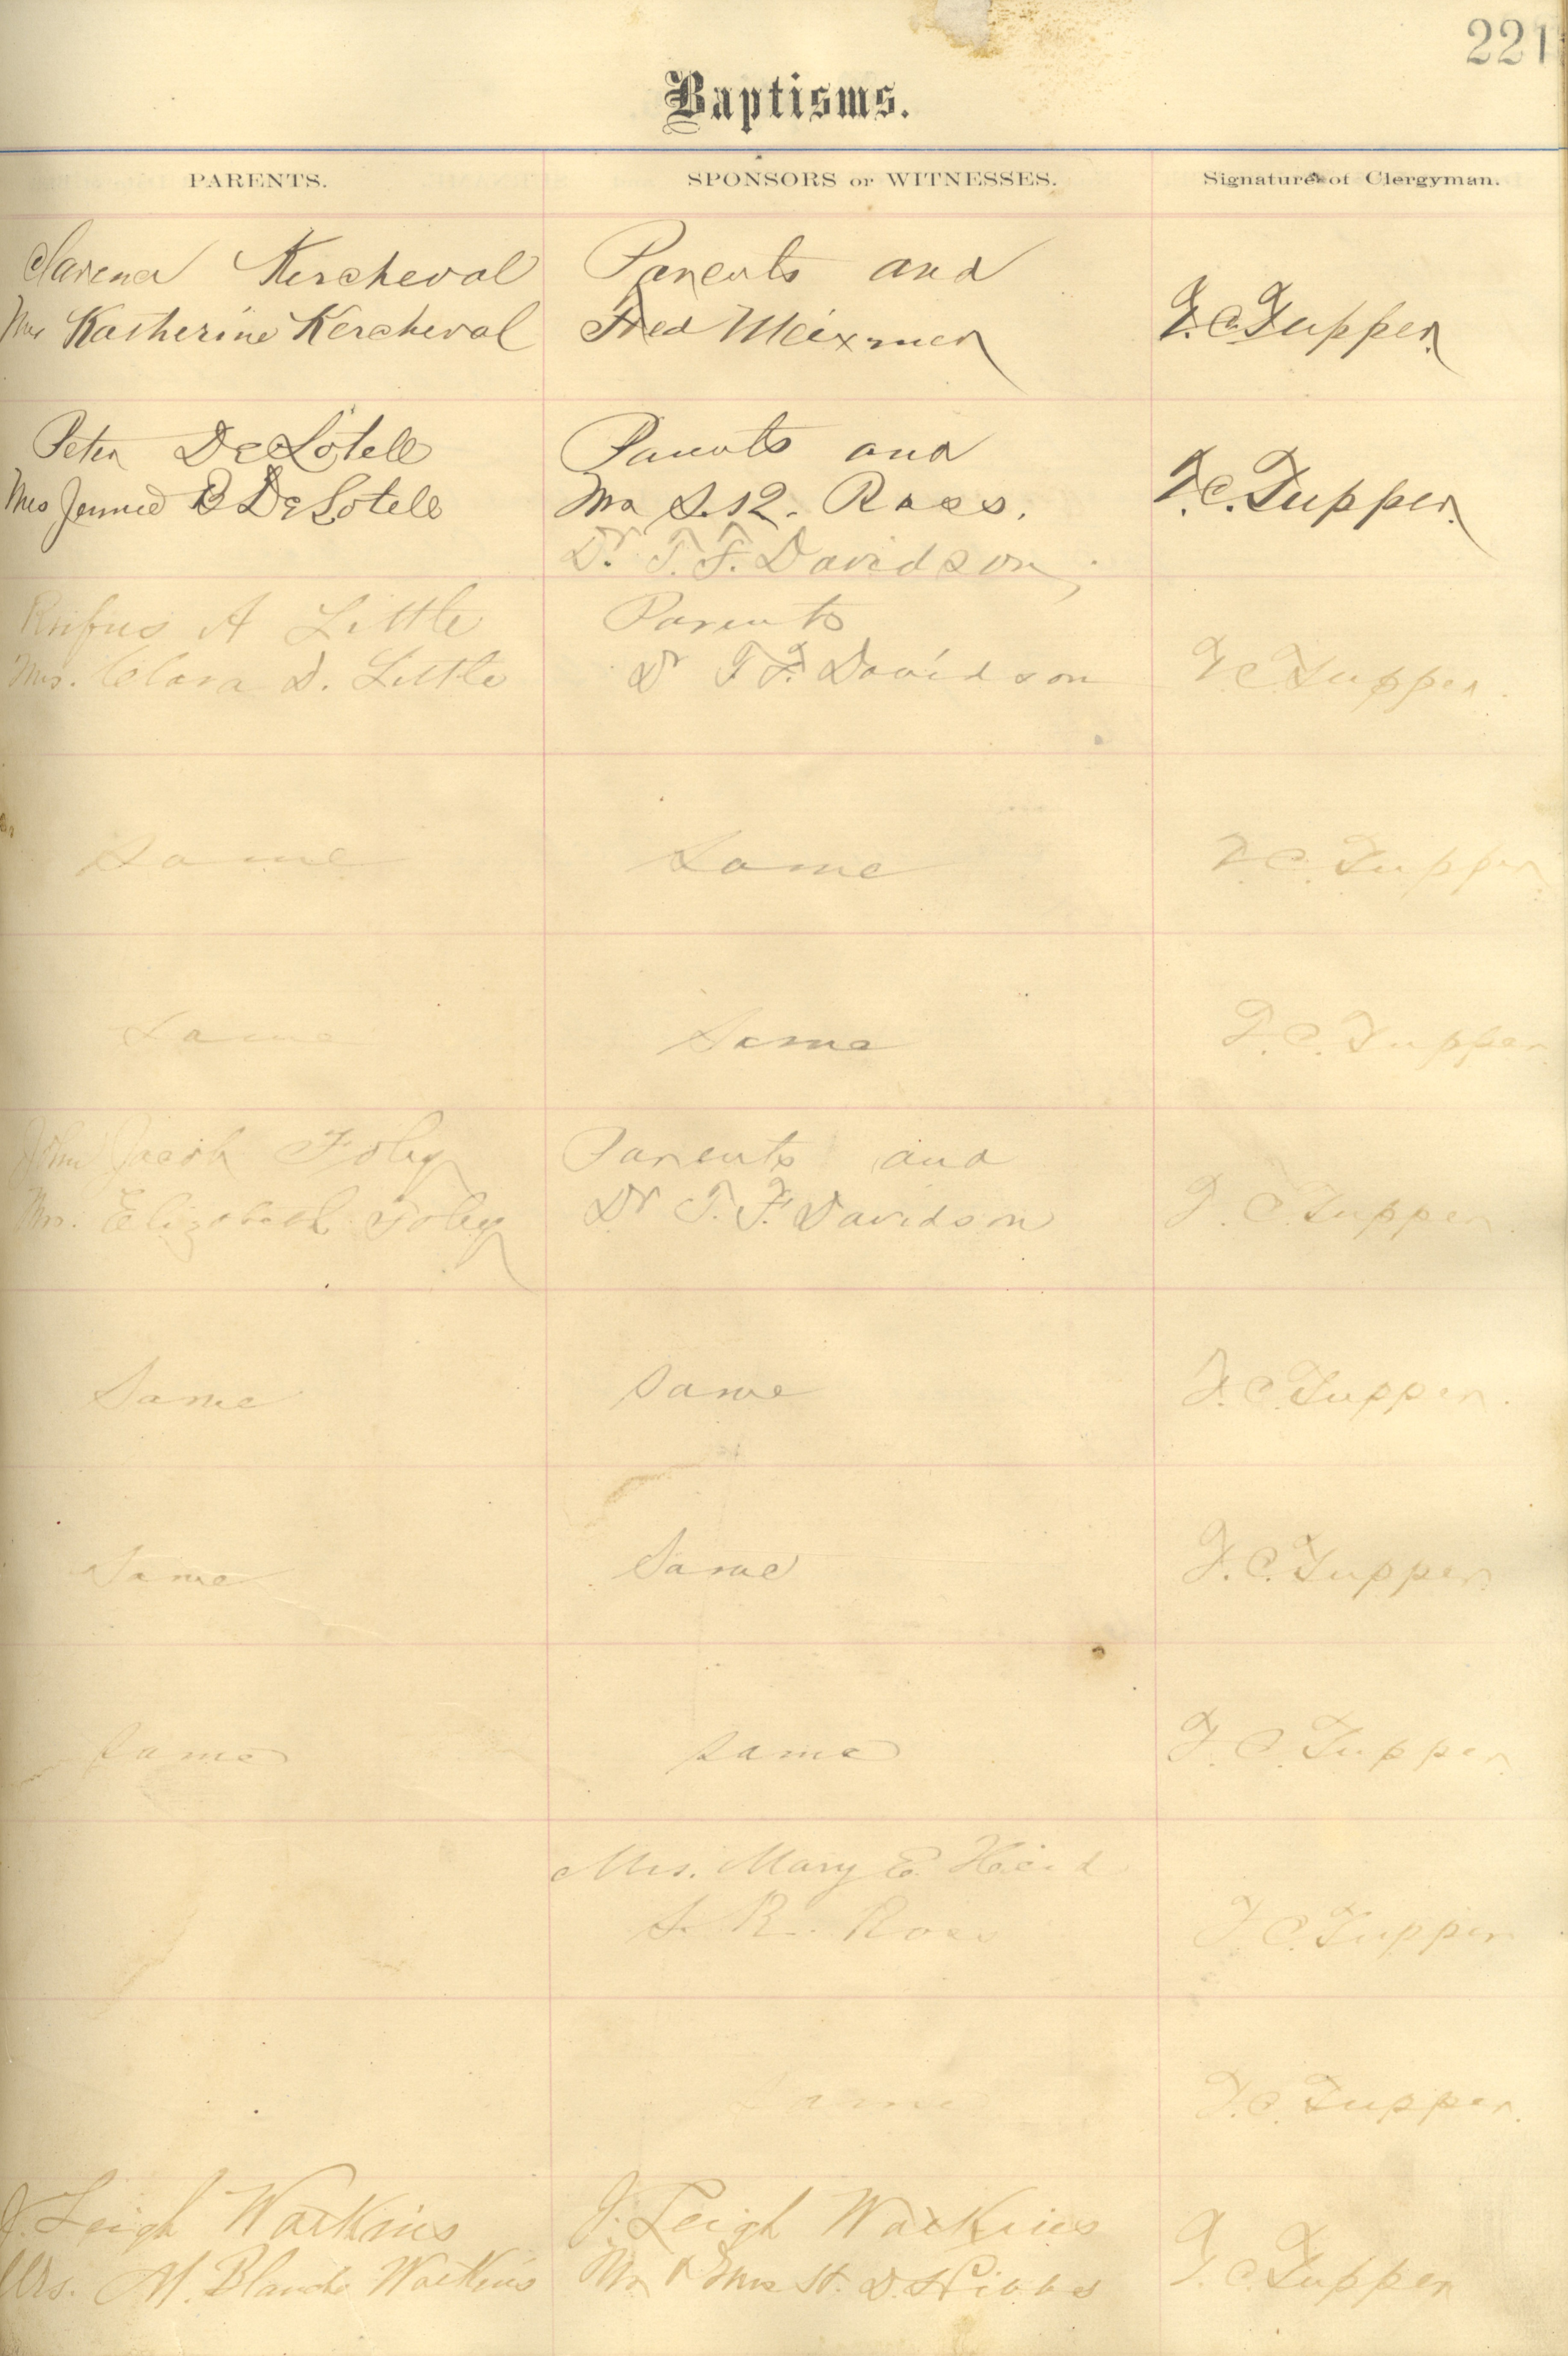 221
Baptisms.
PARENTS. SPONSORS or WITNESSES. Signature of Clergyman.
Kercheval Parents and
Mrs Katherine Kercheval Fred Meixner F. C. Tupper.
Peter DeLotell Parents and
Mrs Jennie B DeLotell Mr S. R. Ross. F. C. Tupper.
Dr. T. F. Davidson,
Rufus A Little Parents
Mrs. Clara D. Little Dr T F. Davidson F C Tupper.
Same Same F. C. Tupper
Same Same F. C. Tupper
John Jacob Foley Parents and
Mrs. Elizabeth Foley Dr T. F. Davidson F. C. Tupper.
Same Same F. C. Tupper.
Same Same F. C. Tupper.
Same Same F. C. Tupper
Mrs. Mary E. Heard
S. R. Ross F. C. Tupper
Same F. C. Tupper.
J. Leigh Watkins J. Leigh Watkins
Mrs. M. Blande Watkins Mr & Mrs H. D. F. C. Tupper